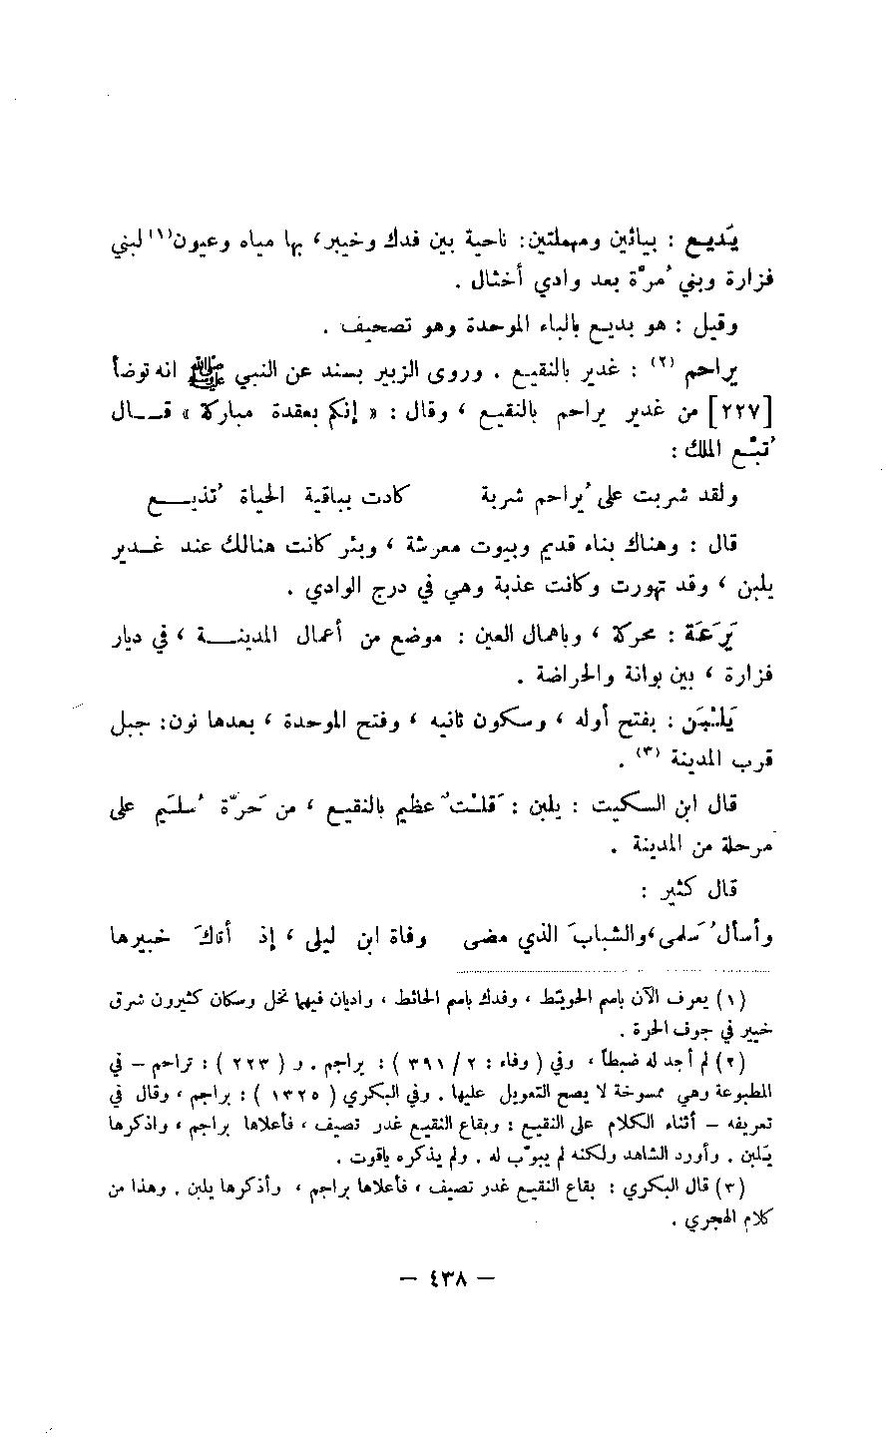 يَديع : بيائين ومهملتين: ناحية بين فدك وخيبر، بها مياه وعيون(١) لبني
فزارة وبني مُرَّة بعد وادي أخثال .
وقيل : هو بديع بالباء الموحدة وهو تصحيف .
يراحم (٢) : غدير بالنقيع . وروى الزبير بسند عن النبي ﷺ انه توضأ
[٢٢٧] من غدير يراحم بالنقيع ، وقال : « إنكم بعقدة مباركة » قـــال
تُبَّع الملك :
ولقد شربت على يُراحم شربة كادت بباقية الحياة تُذيــــع
قال : وهناك بناء قديم وبيوت معرشة ، وبئر كانت هنالك عند غـدير
يلبن ، وقد تهورت وكانت عذبة وهي في درج الوادي .
يَرَعَة : محركة ، وباهمال العين : موضع من أعمال المدينــــة ، في ديار
فزارة ، بين بوانة والحراضة .
يَلْبَن : بفتح أوله ، وسكون ثانيه ، وفتح الموحدة ، بعدها نون: جبل
قرب المدينة (٣) .
قال ابن السكيت : يلبن : قَلْتٌ عظيم بالنقيع ، من حَرَّة سُلَيم على
مرحلة من المدينة .
قال كثير :
وأسأل سَلمى، والشبابَ الذي مضى وفاة ابن ليلى ، إذ أتاكَ خبيرها
(١) يعرف الآن باسم الحويّط ، وفدك باسم الحائط ، واديان فيهما نخل وسكان كثيرون شرق
خيبر في جوف الحرة .
(٢) لم أجد له ضبطاً ، وفي ( وفاء : ٢ / ٣٩١ ) : يراجم . و ( ٢٢٣ ) : تراحم – في
المطبوعة وهي ممسوخة لا يصح التعويل عليها . وفي البكري ( ١٣٢٥ ) : براجم ، وقال في
تعريفه – أثناء الكلام على النقيع : وبقاع النقيع غدر تصيف ، فأعلاها براجم ، واذكرها
يَلبن . وأورد الشاهد ولكنه لم يبوّب له . ولم يذكره ياقوت .
(٣) قال البكري : بقاع النقيع غدر تصيف ، فأعلاها براجم ، وأذكرها يلبن . وهذا من
كلام الهجري .
– ٤٣٨ –